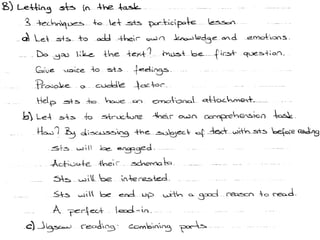 8) Letting sts in the task
3 techniques to let sts participate lesson
a) Let sts to add their own knowledge and emotions.
Do you like the text? must be first question.
Give voice to sts feelings
Provoke a cuddle factor
Help sts to have an emotional attachment.
b) Let sts to structure their own comprehension task.
How? By discussing the subject of text with sts before reading
Sts will be engaged.
Activate their schemata
Sts will be interested.
Sts will be end up with a good reason to read.
A perfect lead-in.
c) Jigsaw reading: combining parts